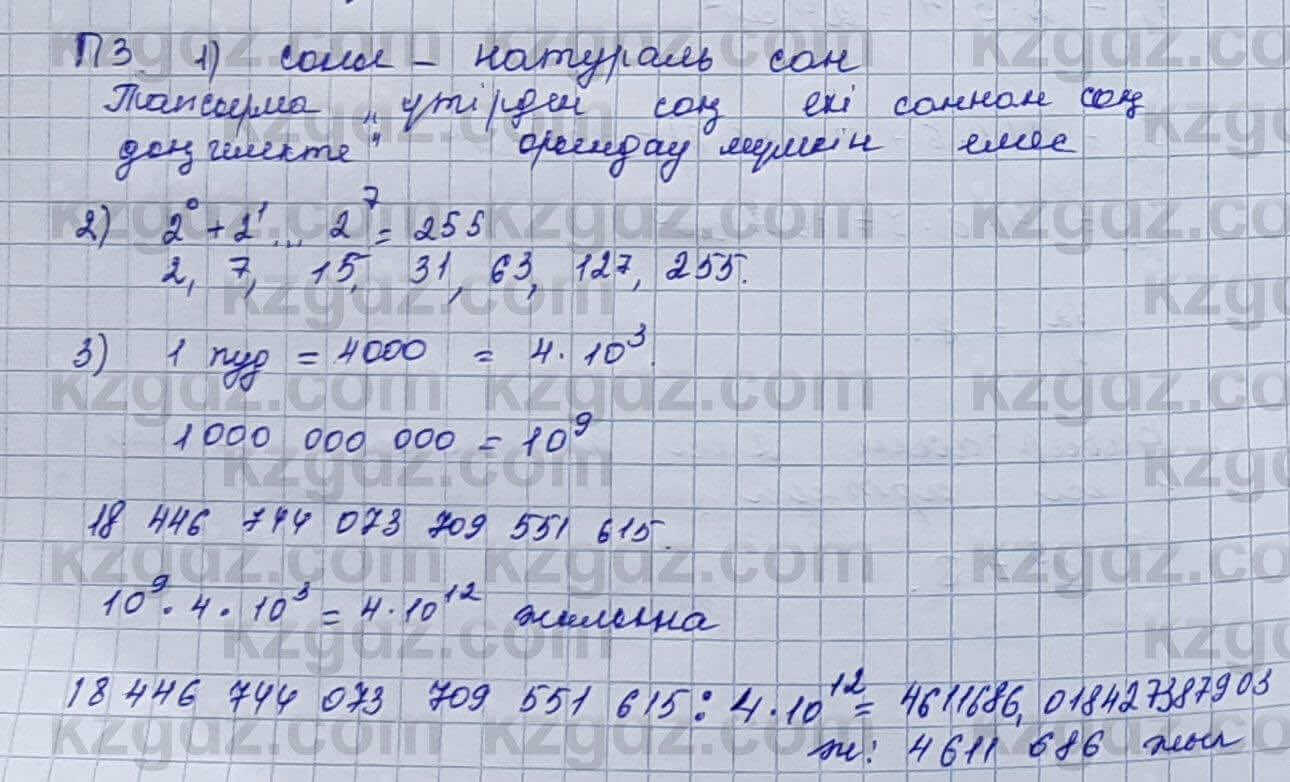 П3 1) саны – натураль сан
Тапсырма „үтірден соң екі саннан соң
дөңгелекте" орындау мүмкін емес
2) 2⁰ + 2¹ ... 2⁷ = 255
2, 7, 15, 31, 63, 127, 255.
3) 1 пуд = 4000 = 4 · 10³.
1 000 000 000 = 10⁹
18 446 744 073 709 551 615.
10⁹ · 4 · 10³ = 4 · 10¹² жылына
18 446 744 073 709 551 615 : 4 · 10¹² = 4611686,018427387903
ж: 4611 686 жыл